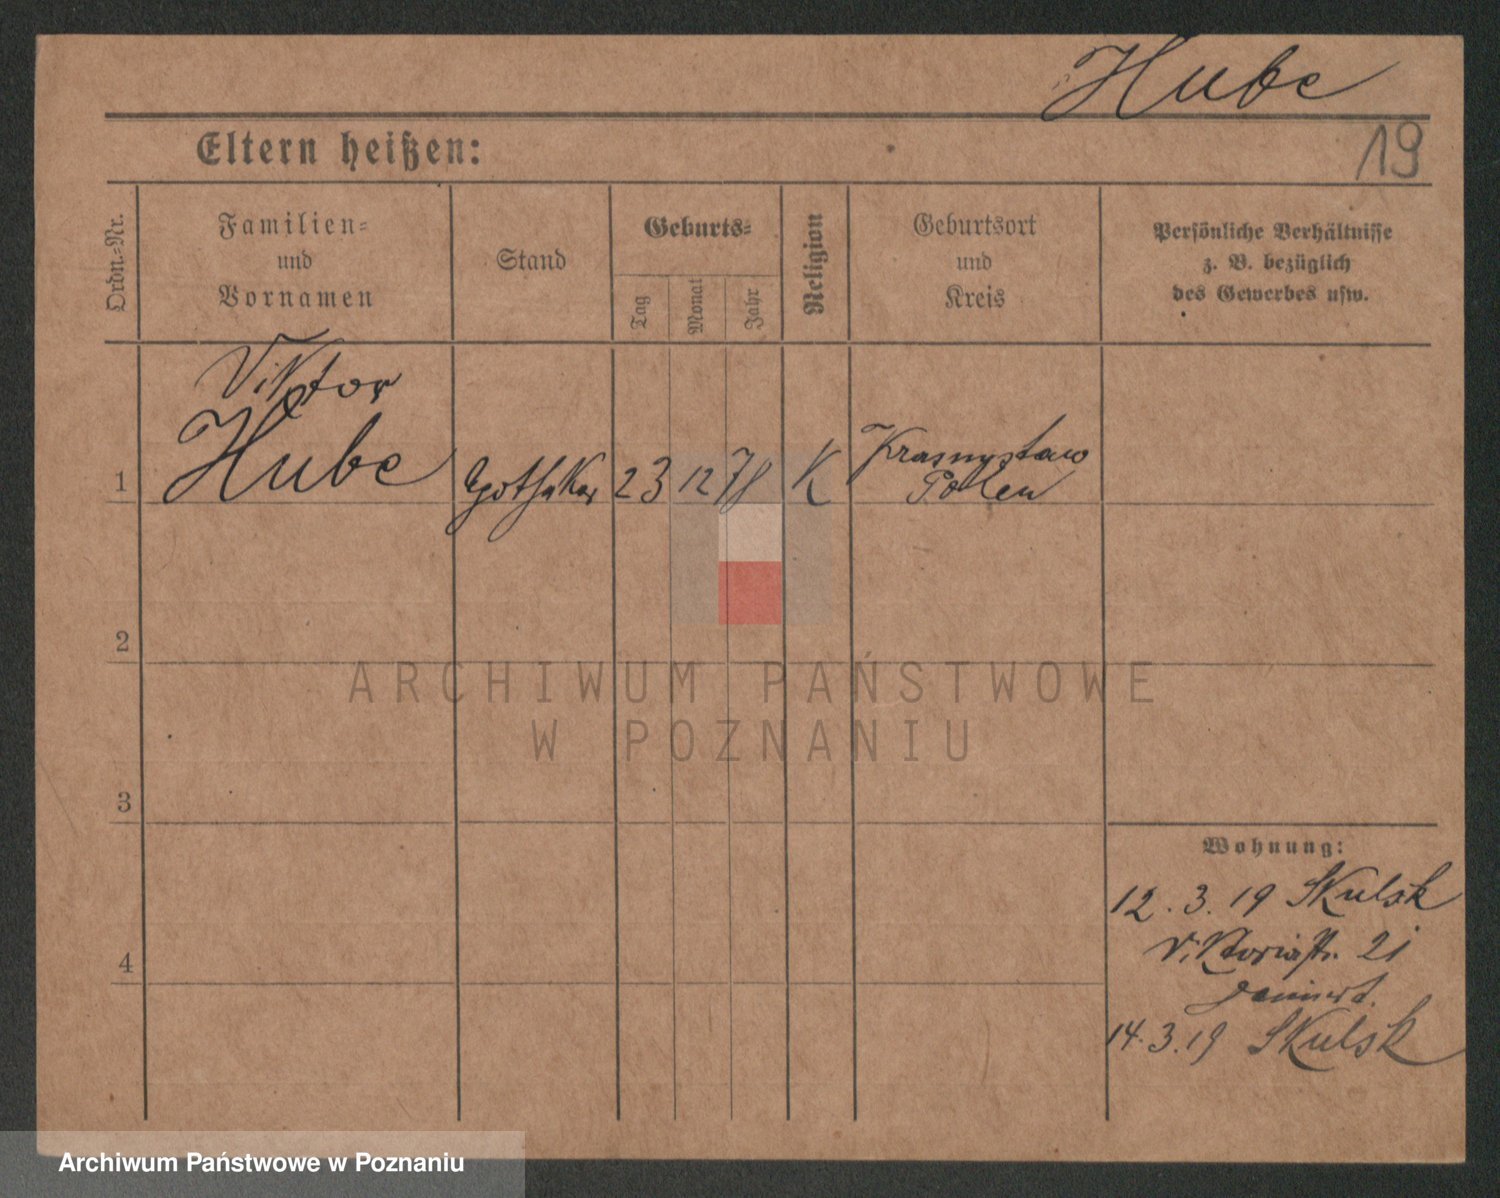 Hube
19
Eltern heißen:
Ordn.-Nr.
Familien-
und
Vornamen
Stand
Geburts-
Tag
Monat
Jahr
Religion
Geburtsort
und
Kreis
Persönliche Verhältnisse
z. B. bezüglich
des Gewerbes usw.
Viktor
1 Hube Apotheker 23 12 78 K Krasnystaw
Polen
2
3
4
Wohnung:
12. 3. 19 Skulsk
Viktoriastr. 21
14. 3. 19 Skulsk
ARCHIWUM PAŃSTWOWE
W POZNANIU
Archiwum Państwowe w Poznaniu